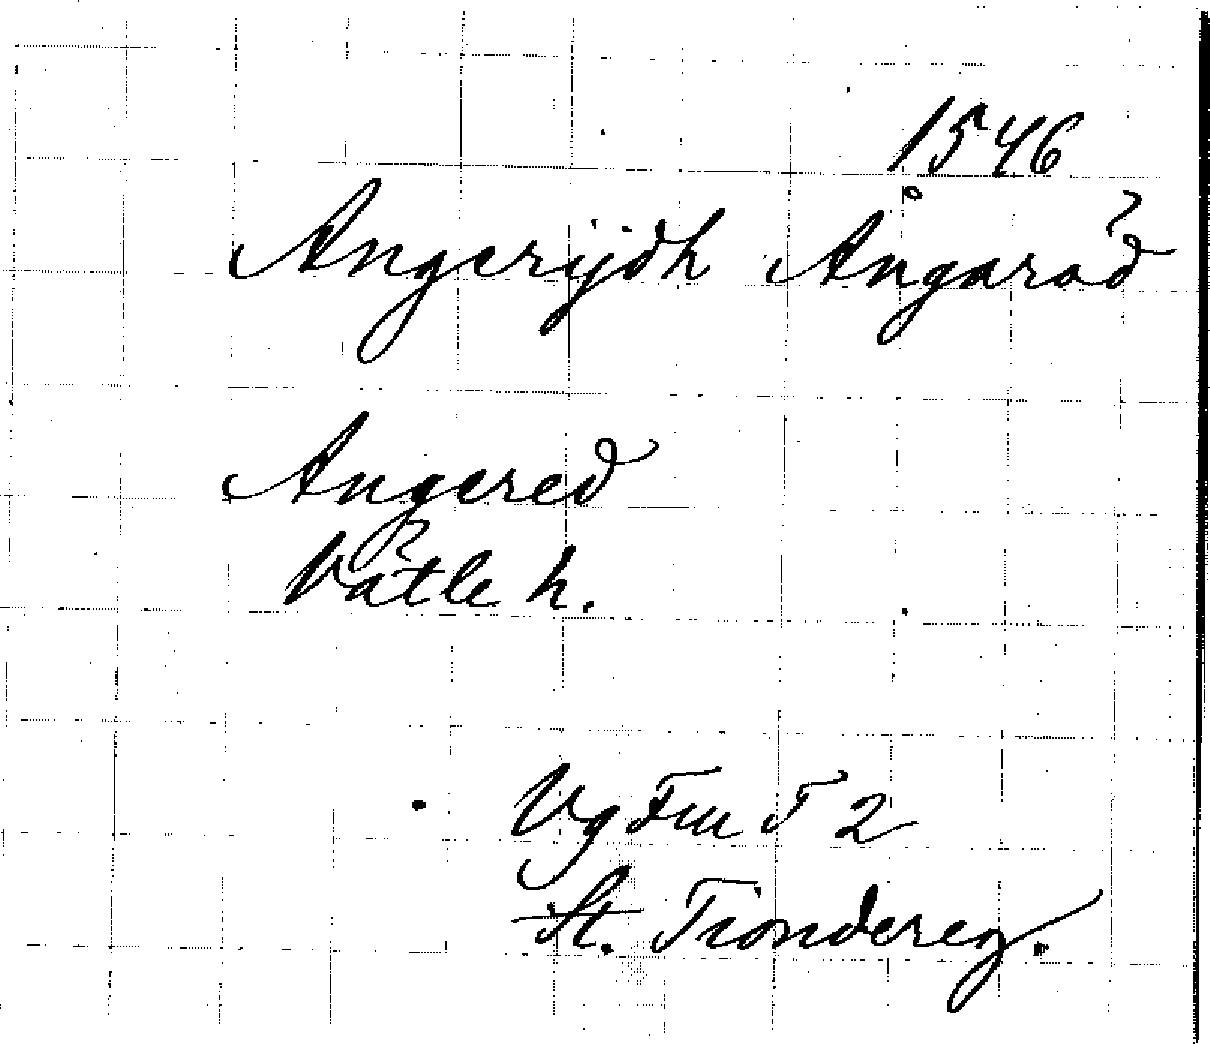 1546
Angerijdh Ångaröd
Angered
Vättle h.
Vg Fru T 2
St. Tiondereg.